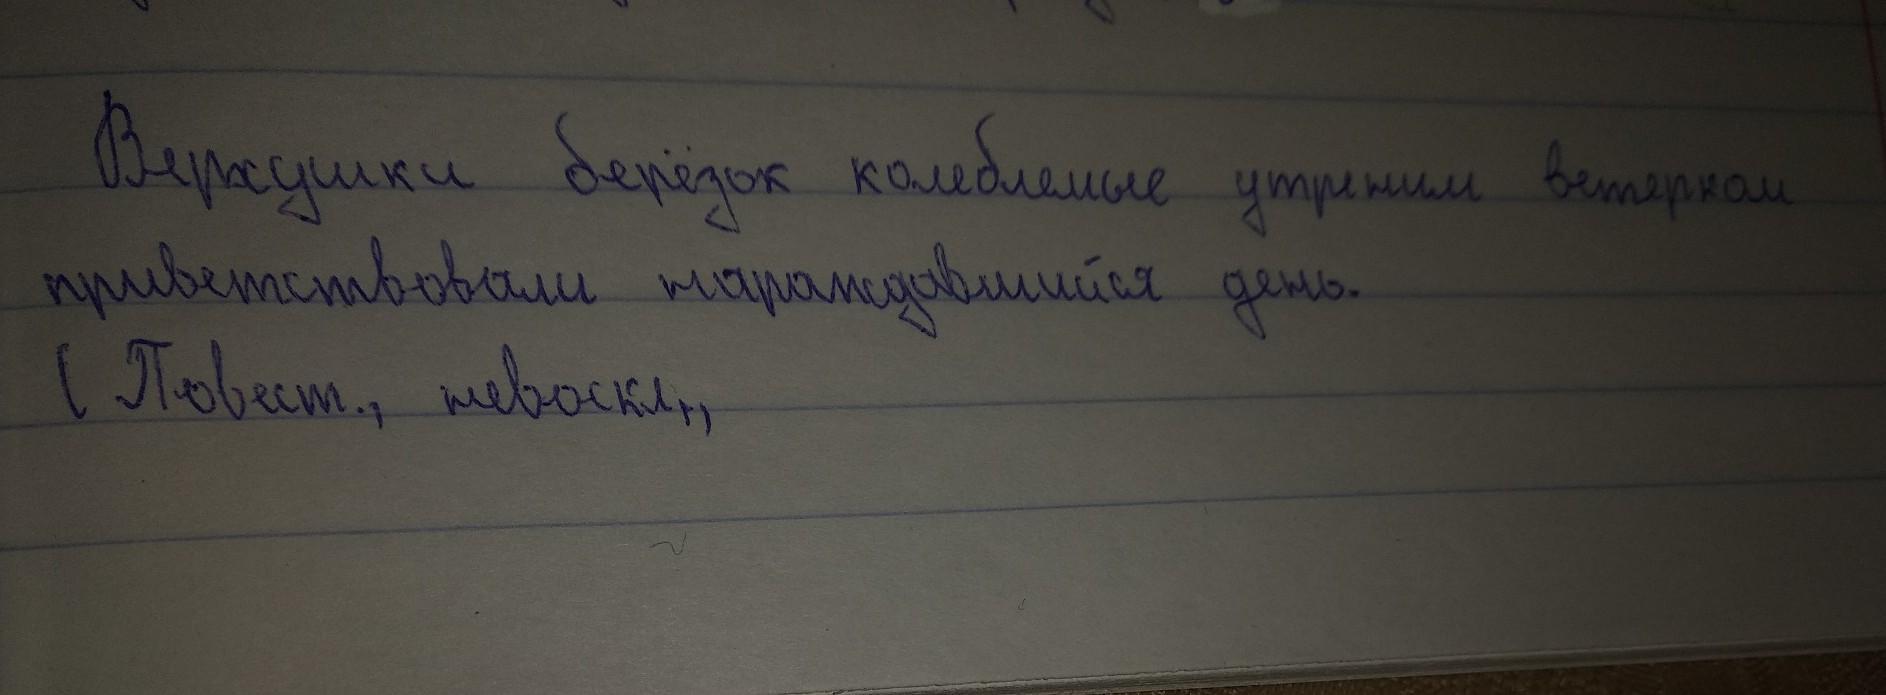 Верхушки берёзок колеблемые утреним ветерком
приветствовали нараждавшийся день.
( Повест., невоскл.,